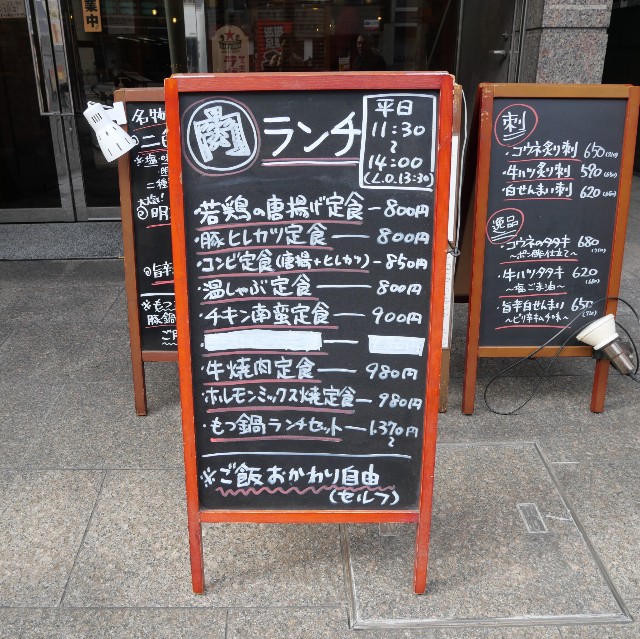 業中
肉 ランチ
平日
11:30
~
14:00
(L.O.13:30)
・若鶏の唐揚げ定食ー800円
・豚ヒレカツ定食ー800円
・コンビ定食(唐揚+ヒレカツ)ー850円
・温しゃぶ定食ー800円
・チキン南蛮定食ー900円
・牛焼肉定食ー980円
・ホルモンミックス焼定食ー980円
・もつ鍋ランチセットー1.370円
~
※ご飯おかわり自由
(セルフ)
名物
刺
・コウネ炙り刺 650
・牛ハツ炙り刺 590
・白せんまい刺 620
逸品
・コウネのタタキ 680
~ポン酢仕立て~
・牛ハツタタキ 620
~塩ごま油~
・旨辛白せんまい 650
~ピリ辛キムチ味~